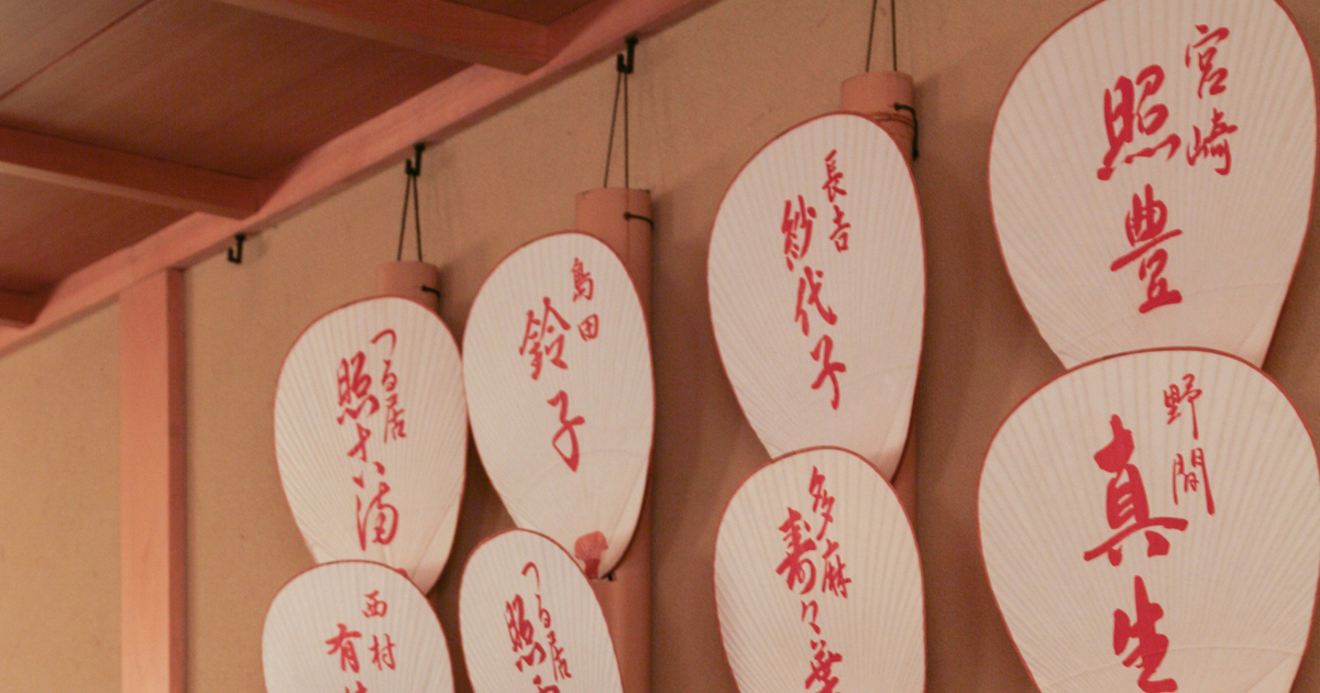 宮崎
照豊
野間
真生
長吉
紗代子
多麻
寿々葉
島田
鈴子
つる居
照
つる居
照
西村
有